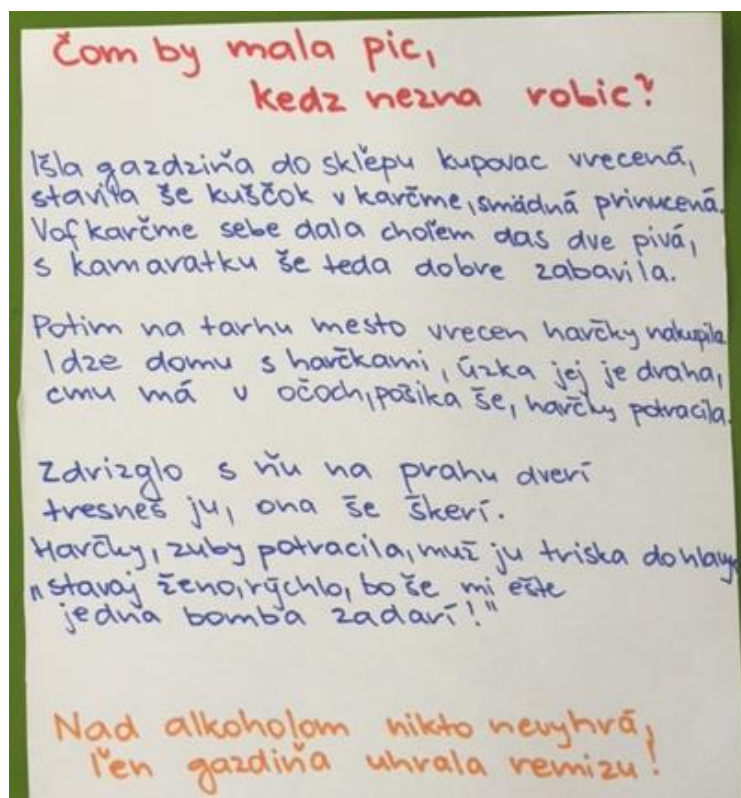 Čom by mala pic,
kedz nezna robic?
Išla gazdziňa do skľepu kupovac vrecená,
stavila še kuščok v karčme, smädná prinucená.
Vof karčme sebe dala choľem das dve pivá,
s kamaratku še teda dobre zabavila.
Potim na tarhu mesto vrecen harčky nakupila
Idze domu s harčkami, úzka jej je draha,
cmu má v očoch, pošika še, harčky potracila.
Zdrizglo s ňu na prahu dverí
tresneš ju, ona še škerí.
Harčky, zuby potracila, muž ju triska do hlavy
"stavaj ženo, rýchlo, bo še mi ešte
jedna bomba zadarí!"
Nad alkoholom nikto nevyhrá,
ľen gazdiňa uhrala remizu!